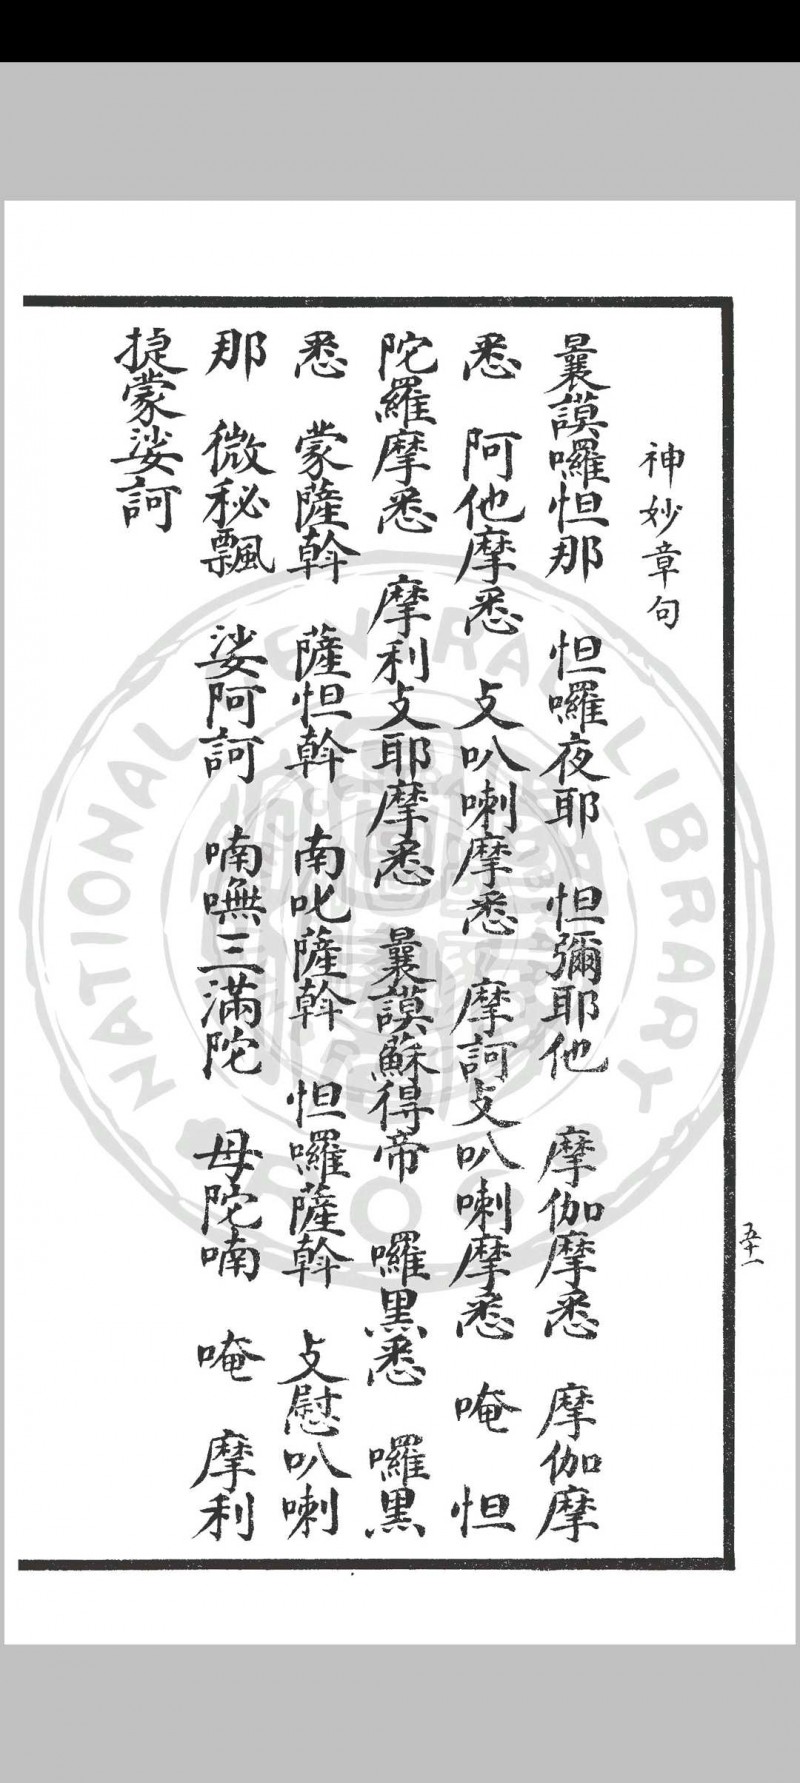 神妙章句
曩謨囉怛那　怛囉夜耶　怛彌耶他　摩伽摩悉　摩伽摩
悉　阿他摩悉　攴叭喇摩悉　摩訶攴叭喇摩悉　唵　怛
陀羅摩悉　摩利攴耶摩悉　曩謨蘇得帝　囉黑悉　囉黑
悉　蒙薩斡　薩怛斡　南叱薩斡　怛囉薩斡　攴慰叭喇
那　微秘飄　娑阿訶　喃嘸三滿陀　母陀喃　唵　摩利
捷蒙娑訶
五十一
NATIONAL CENTRAL LIBRARY